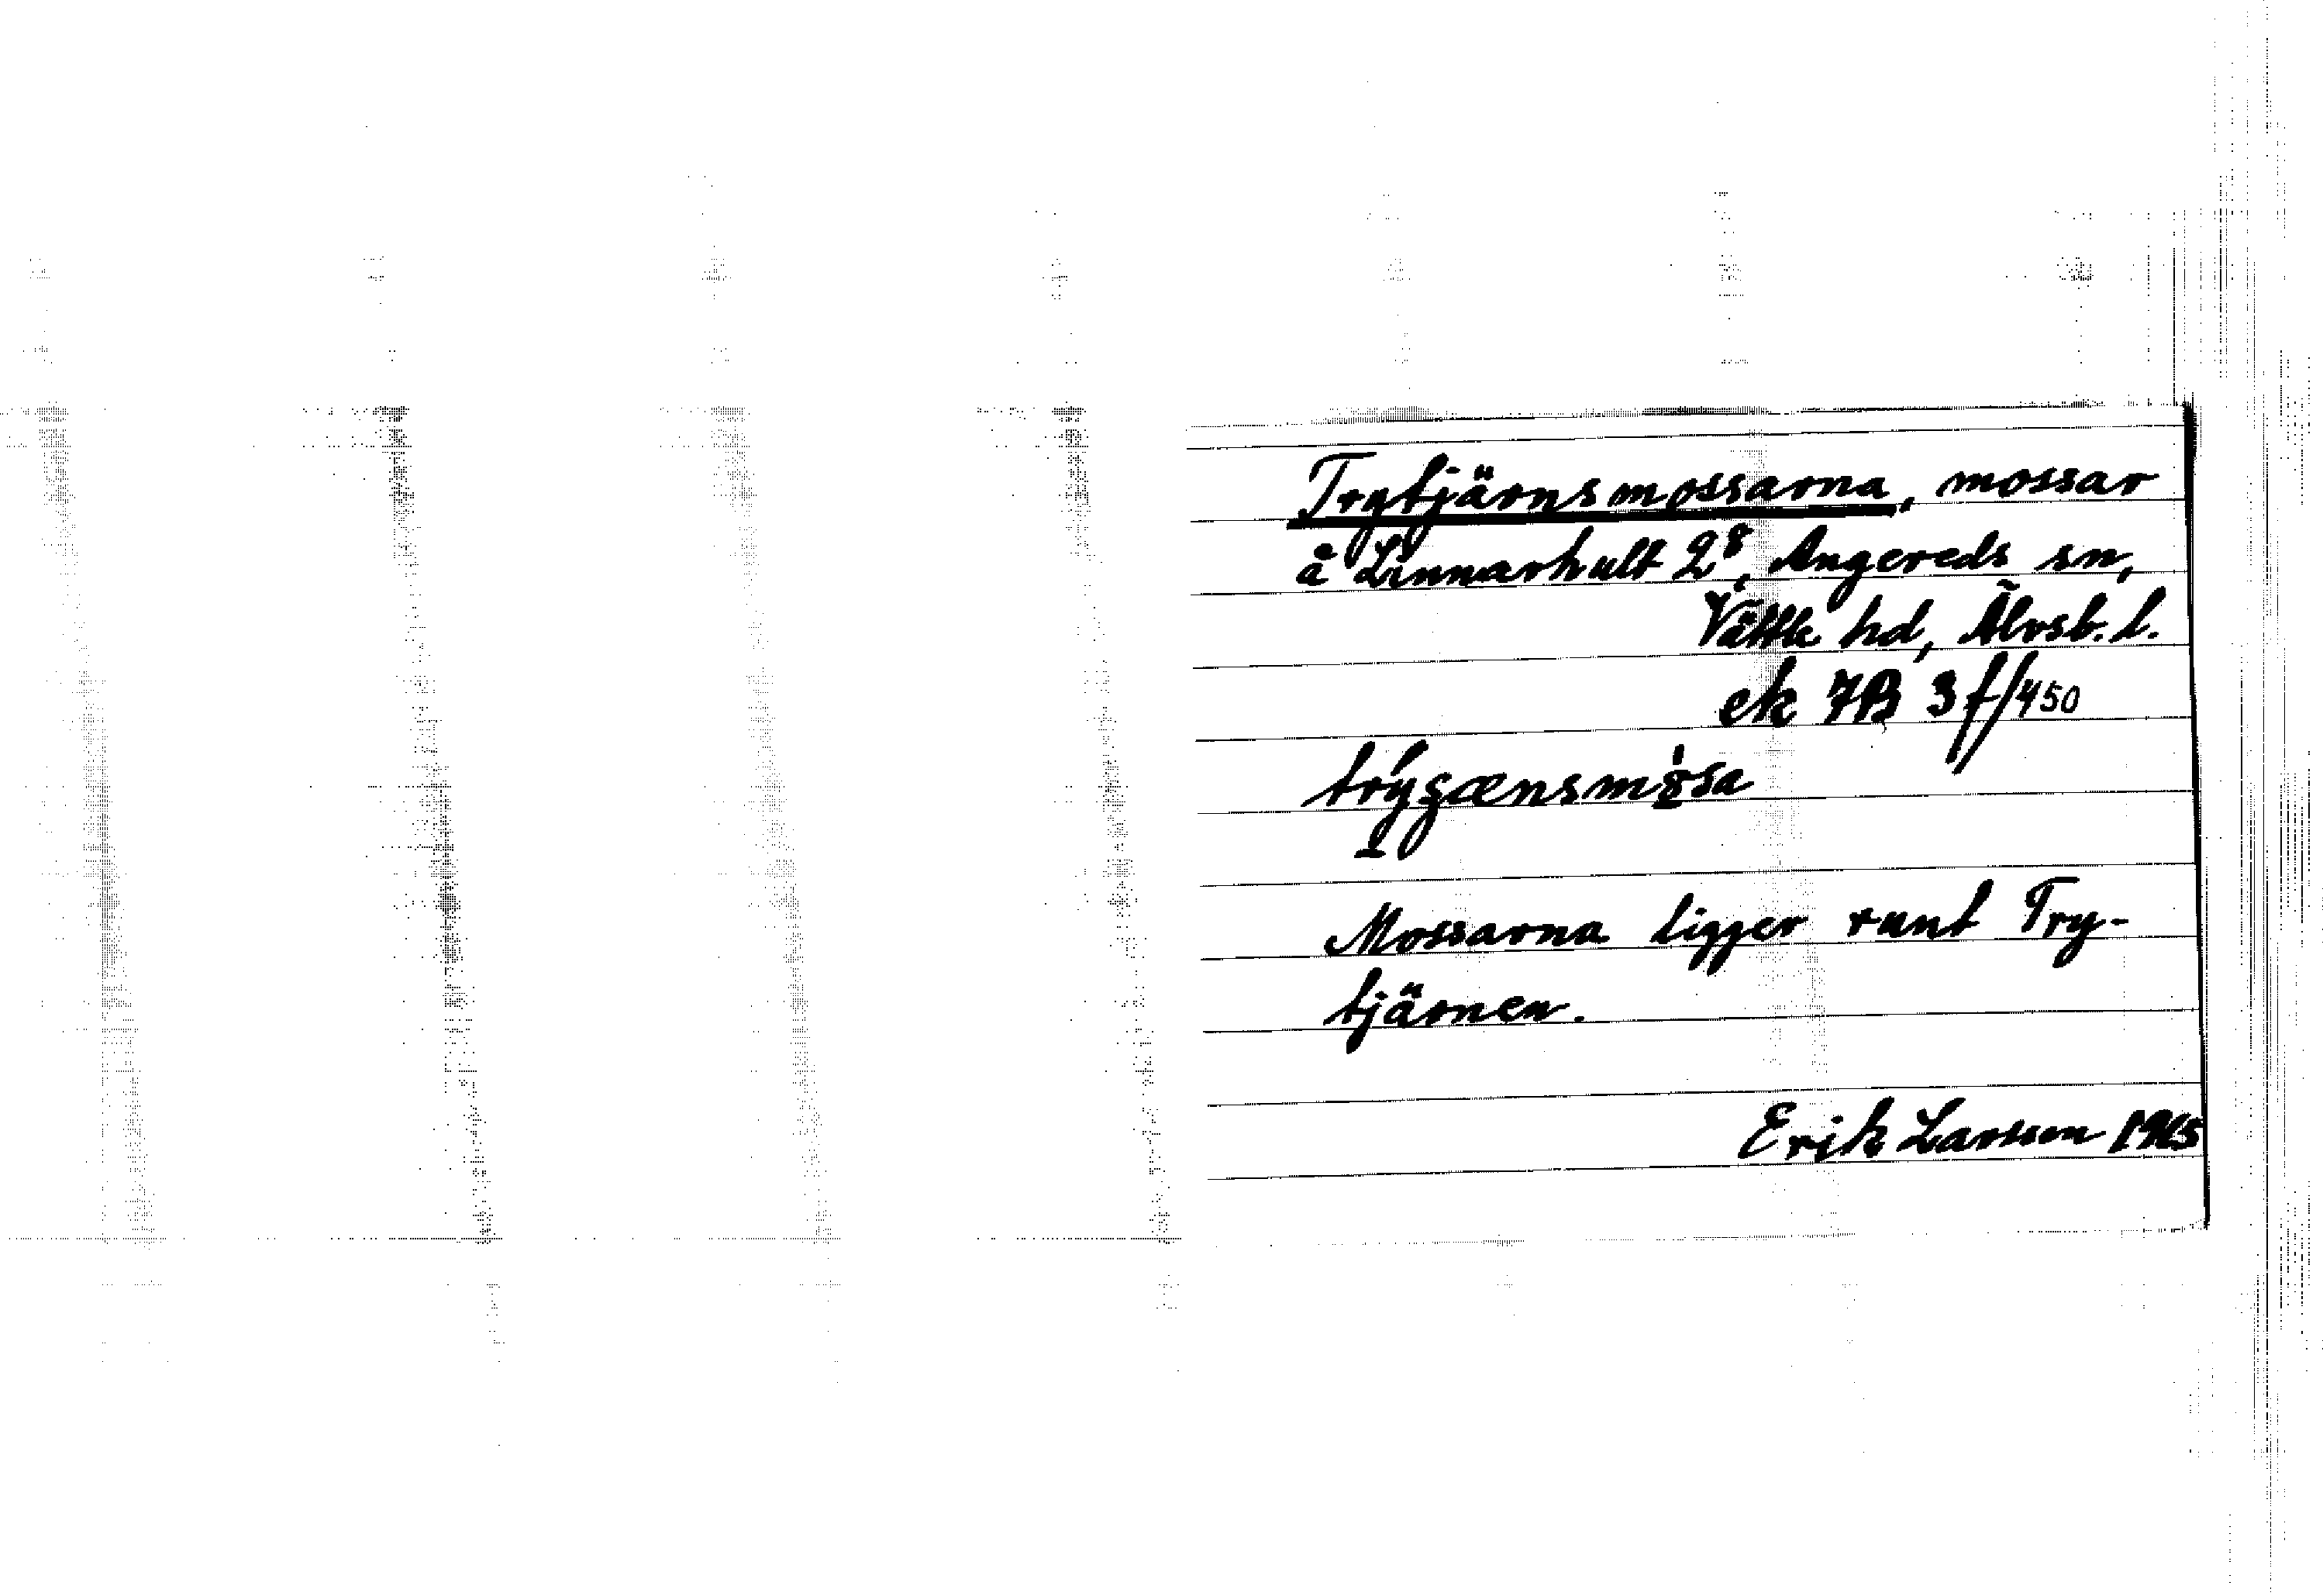 Trytjärnsmossarna, mossar
å Linnarhult 2⁸, Angereds sn,
Vättle hd, Älvsb. l.
ek 7B 3f/450
Mossarna ligger runt Try-
tjärnen.
Erik Larsson 1965